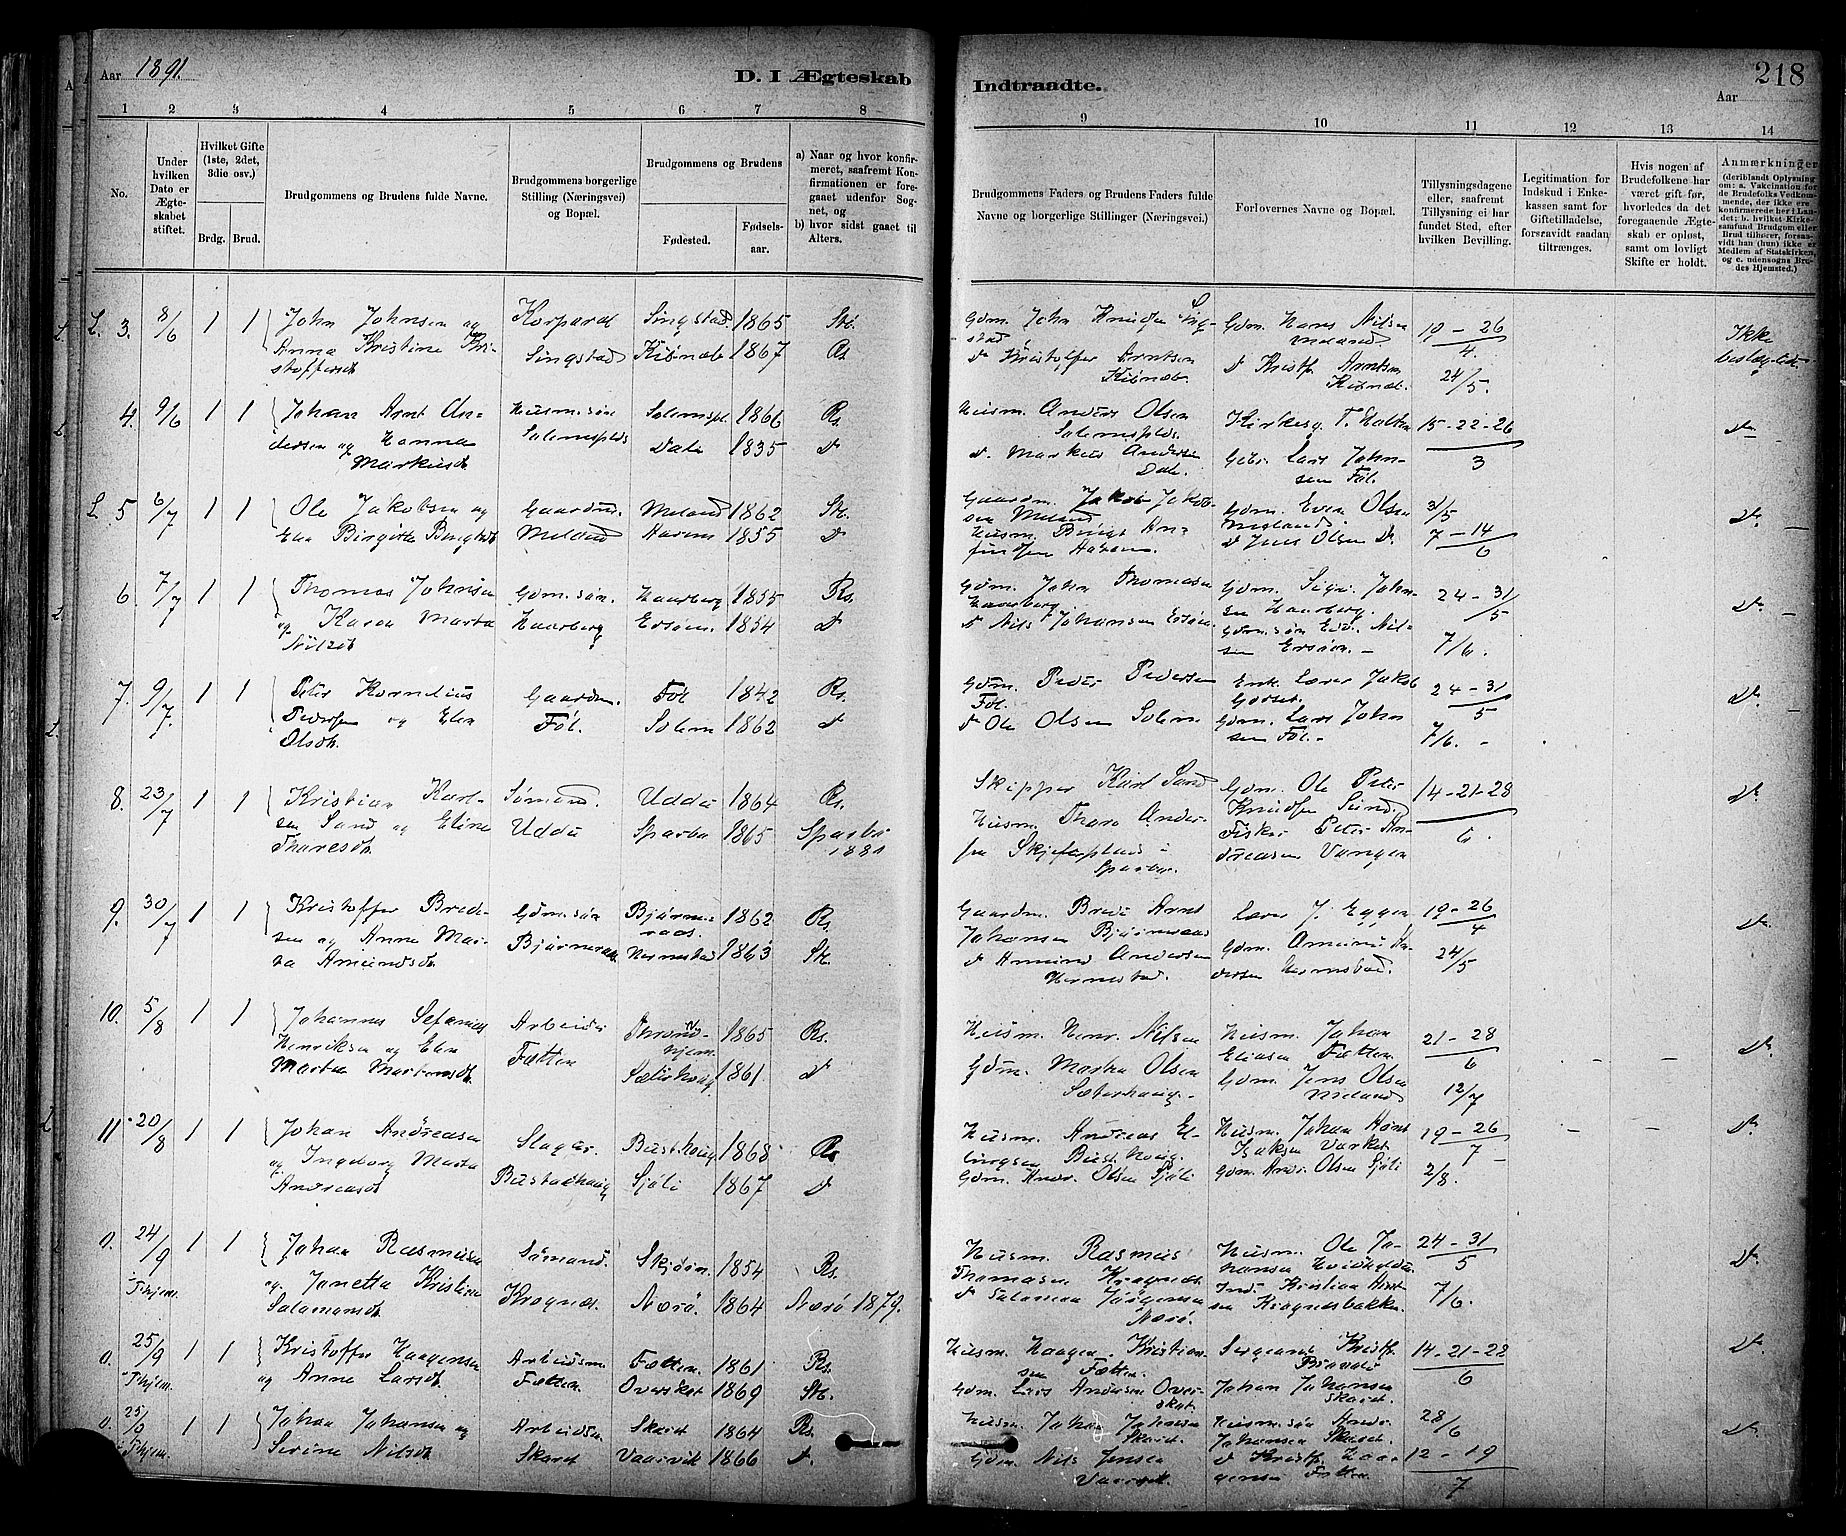 Aar 1891.
D. I Ægteskab
Indtraadte.
218
Aar
1 2 3 4 5 6 7 8
9 10 11 12 13 14
No.
Under hvilken Dato er Ægteskabet stiftet.
Hvilket Gifte (1ste, 2det, 3die osv.)
Brdg. Brud.
Brudgommens og Brudens fulde Navne.
Brudgommens borgerlige Stilling (Næringsvei) og Bopæl.
Brudgommens og Brudens
Fødested. Fødselsaar.
a) Naar og hvor konfirmeret, saafremt Konfirmationen er foregaaet udenfor Sognet, og
b) hvor sidst gaaet til Alters.
Brudgommens Faders og Brudens Faders fulde Navne og borgerlige Stillinger (Næringsvei.)
Forlovernes Navne og Bopæl.
Tillysningsdagene eller, saafremt Tillysning ei har fundet Sted, efter hvilken Bevilling.
Legitimation for Indskud i Enkekassen samt for Giftetilladelse, forsaavidt saadan tiltrænges.
Hvis nogen af Brudefolkene har været gift før, hvorledes da det foregaaende Ægteskab er opløst, samt om lovligt Skifte er holdt.
Anmærkninger
(deriblandt Oplysning om: a. Vakcination for de Brudefolks Vedkommende, der ikke ere konfirmerede her i Landet; b. hvilket Kirkesamfund Brudgom eller Brud tilhører, forsaavidt han (hun) ikke er Medlem af Statskirken, og c. udensogns Brudes Hjemsted.)
L. 3. 8/6 1 1 John Johnsen og Korporal Singstad 1865 St.
Anna Kristine Kri- Singstad Kibnæb 1867 Rs.
stoffersdt.
Gdm. John Knudsen Sing- Gdm. Hans Nilsen 10 - 26 Ikke
stad Meland 4. beslægtede
d Kristoffer Arntsen d Kristf. Arntsen 24/5.
Kibnæb. Kibnæb.
4. 9/6 1 1 Johan Arnt An- Husm.søn Solemspl. 1866 Rs.
dersen og Hanna Solemsplds. Dale 1835 d
Markusdt.
Husm. Anders Olsen Kirkesg. T. Holten 15-22-26 do
Solemsplds.
d. Markus Andersen Gbr. Lars John- 3
Dal. sen Føl.
L. 5 6/7 1 1 Ole Jakobsen og Gaardm. Meland 1862 St.
Elen Birgitte Bengtsdt. Meland 1855 d
Gaardm. Jakob Jakob- Gdm. Even Olsen 31/5 do
sen Meland Meland.
Husm. d Jens Olsen d. 7 - 14
6
6. 7/7 1 1 Thomas Johnsen Gdm.søn. Haarberg 1855 Rs.
og Karen Marta Haarberg 1854 d
Nilsdt.
Gdm. John Thomasen Gdm. John- 24 - 31 do
Haarberg sen Haarberg. 5
d Nils Johansen Gdm.søn Nil- 7/6.
sen
7. 9/7. 1 1 Peter Kornelius Gaardm. Føl 1842 Rs.
Pedersen og Elen Føl. Solem 1862 d
Olsdt.
Gdm. Peder Pedersen Lærer Jakob 24 - 31 do
Føl. 5
d Ole Olsen Solem Gdm. Lars John 7/6. -
sen Føl. -
8. 23/7 1 1 Kristian Karl- Sømand. Uddu 1864 Rs.
sen Sand og Eline Uddu Sparbu 1865 Sparbu
Tharesdt. 1881
Skipper Karl Sand Gdm. Ole Peter 14-21-28 do
Knudsen Sund.
Husm. Thare Ander- Fisker Peter An- 6.
sen Skjefteplads i dreasen Vangen
Sparbu.
9. 30/7 1 1 Kristoffer Brede- Gdm.søn Bjørne- 1862 Rs.
sen og Anne Mar- Bjørneraas raas.
ta Amundsdt. Hermstad 1863 St.
Gaardm. Brede Arnt Lærer J. Eggen 19-26 do
Johansen Bjørneraas Gdm. Amund An- 4
d Amund Andersen dersen Hermstad. 24/5
Hermstad.
10. 5/8 1 1 Johannes Sefanias Arbeider Thrond- 1865 Rs.
Henriksen og Elen Fætten hjem.
Marta Martensdt. Sæterhaug 1861. d
Husm. Henr. Nilsen Husm. Johan 21 - 28 do
Eliasen Fætten 6
Gdm. Marten Olsen Gdm. Jens Olsen 12/7
Sæterhaug. Meland
11 20/8 1 1 Johan Andreasen Slagter. Busthaug 1868 Rs.
og Ingeborg Marta Bustadhaug Sjøli 1867 d
Andreasdt.
Husm. Andreas El- Husm. Johan Arnt 19 - 26 do
lingsen Busthaug. Isaksen 7
Gdm. Andr. Olsen Sjøli Gdm. Andr. Olsen Sjøli 2/8.
0. 24/9 1 1 Johan Rasmusen Sømand. Skjørin. 1854 Rs.
i Thjem. og Janetta Kristine Krognæs. Nærø 1864 Nærø 1879.
Salamonsdt.
Husm. Rasmus Husm. Ole Jo- 24 - 31 do
Thomasen Krognæs. hansen 5
d Salamon Jørgensen Ind. Kristian Arnt- 7/6.
Nærø. sen Krognæsbakken
0. 25/9 1 1 Kristoffer Haagensen Arbeidsm Fætten. 1861 Rs.
i Thjem. og Anne Larsdt. Fætten Overskot 1869 St.
Husm. Haagen Kristian- Sergeant Kristf. 14-21-28 do
sen Fætten. 6
Gdm. Lars Andersen Over- Johan Johansen
skot. Skaret.
0. 25/9 1 1 Johan Johansen og Arbeidsm Skaret 1864 Rs.
i Thjem. Serine Nilsdt. Skaret Vaarvik 1866 d.
Husm. Johan Johansen Husm.søn Andr. 28/6 do
Skaret. Johansen Skaret.
Gdm. Nils Jensen d Kristf. Haa- 12 - 19
Vaarvik. gensen Fætten 7